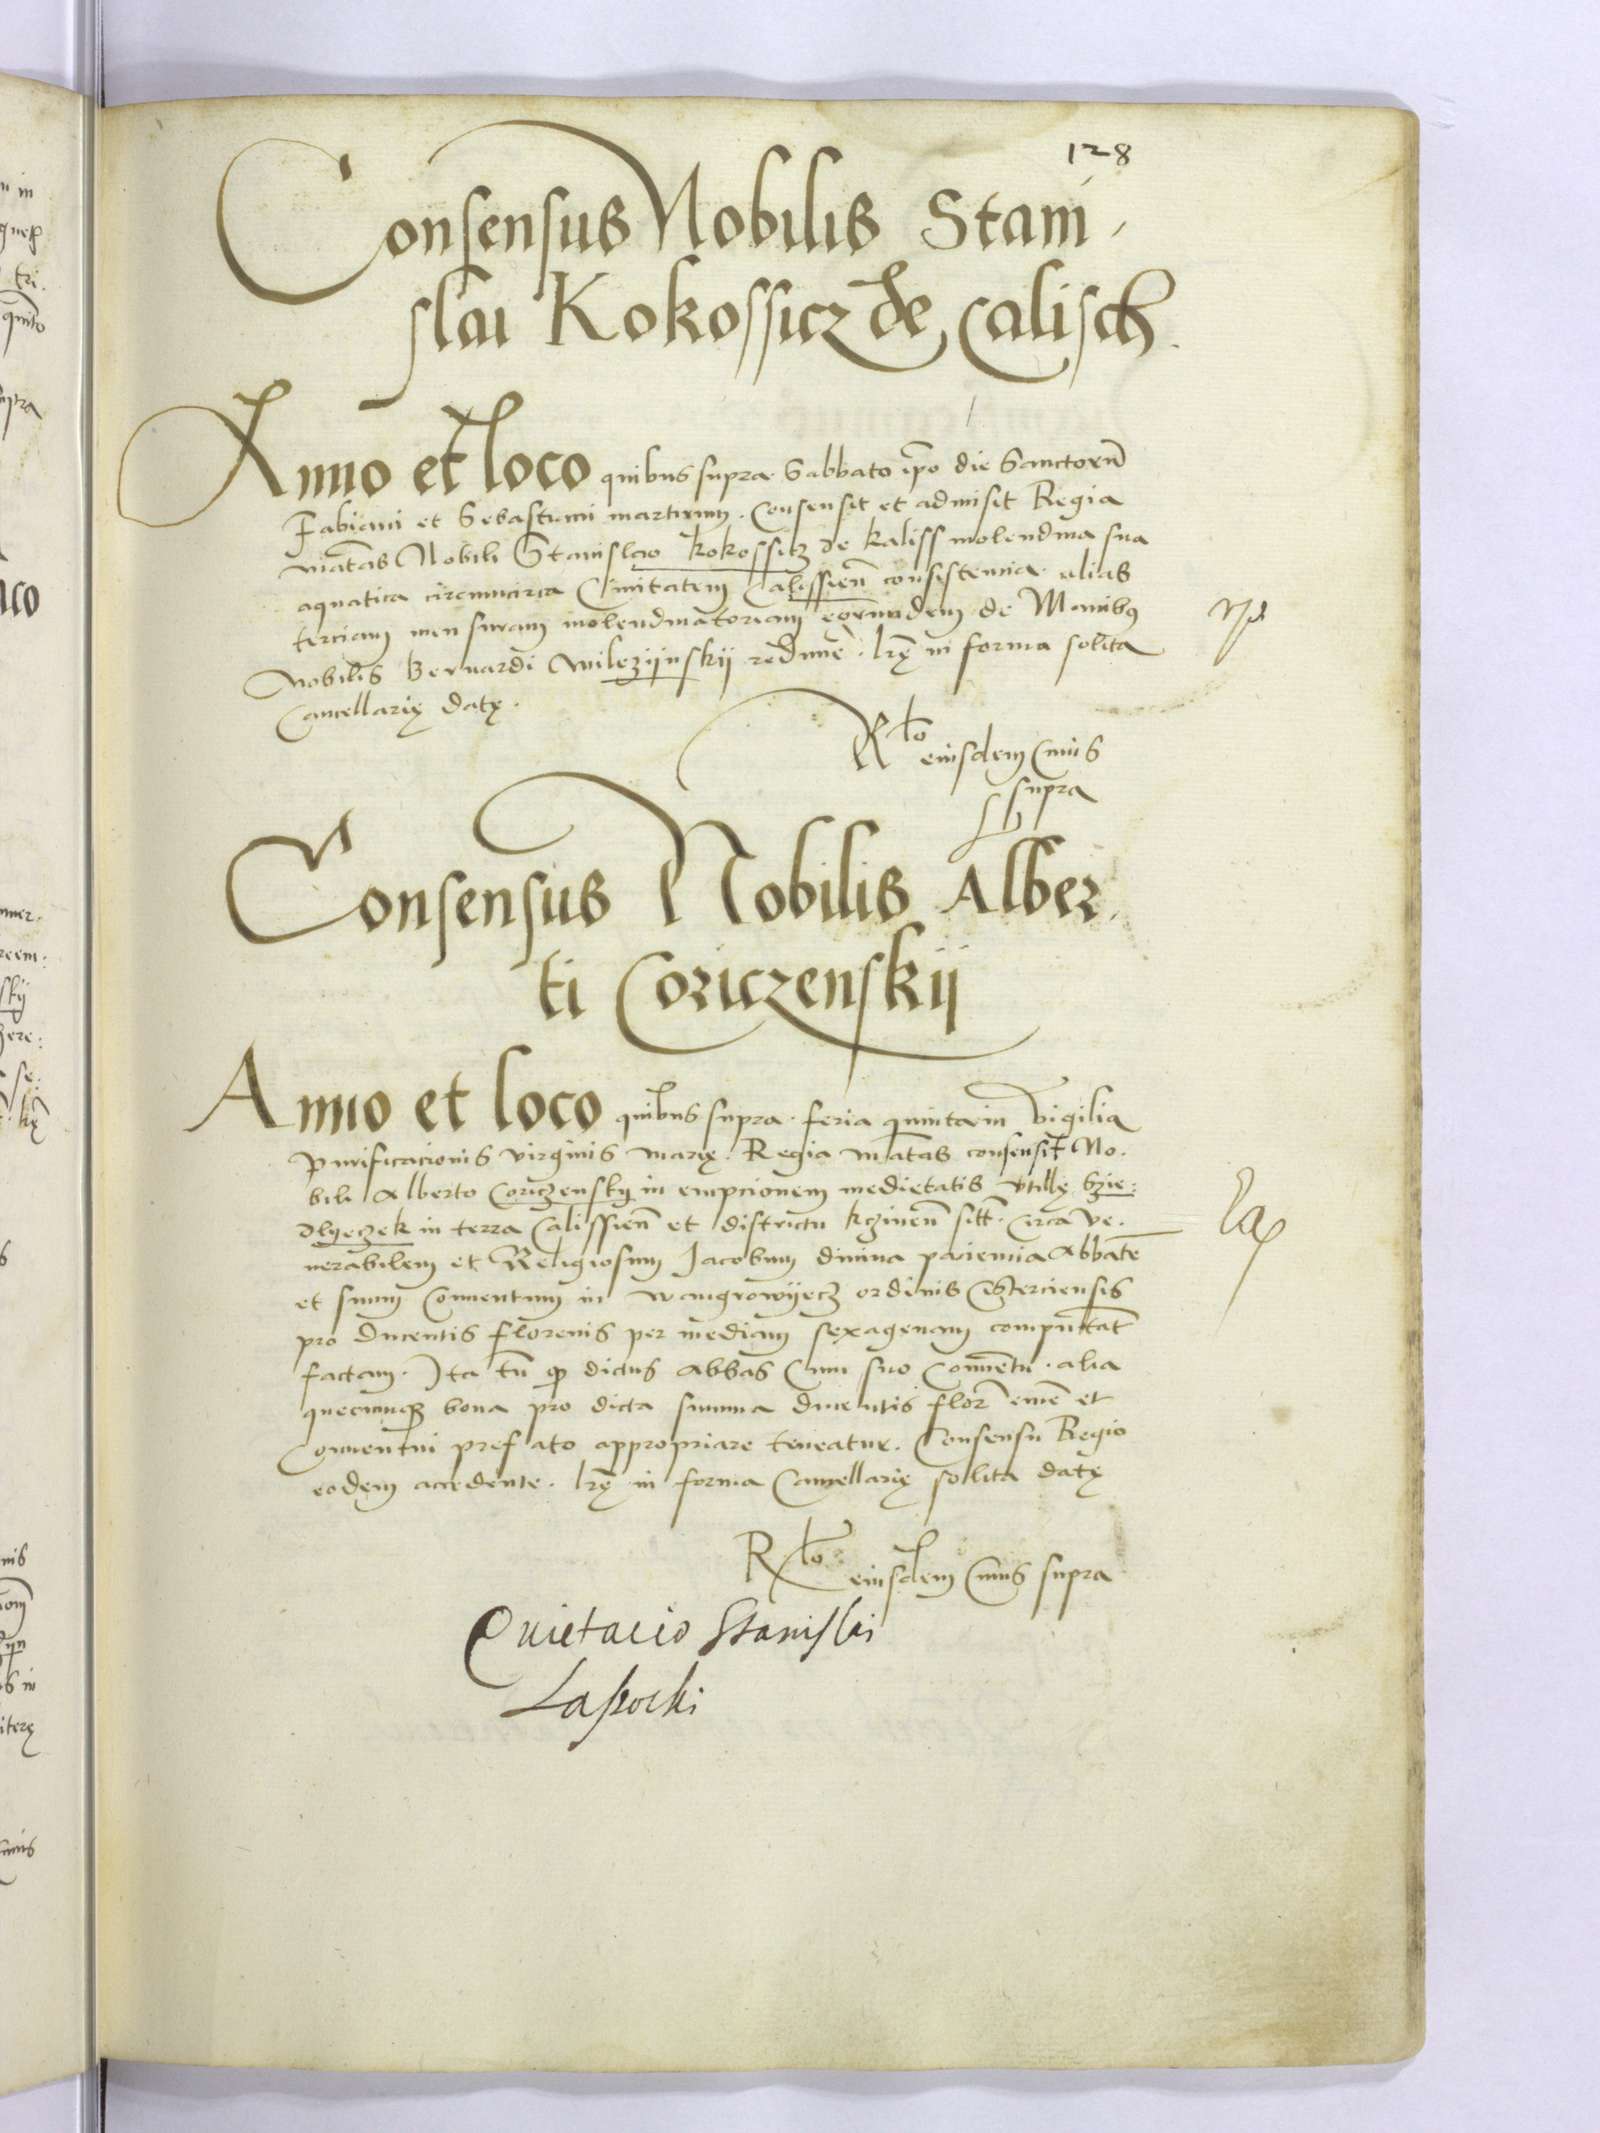 128
Consensus Nobilis Stani,
slai Kokossicz de Calisch.
Anno et loco quibus supra Sabbato ipo die Sanctorum
Fabiani et Sebastiani martirum. Consensit et admisit Regia
matas Nobili Stanislao kokossicz de kaliss molendina sua
aquatica circumcirca Civitatem Calissien consistencia alias
terciam mensuram molendinatoriam eorundem de Manibus
Nobilis Bernardi Wilczijnskij redime. lrę in forma solita
Cancellarię datę.
Rlo eiusdem cuius
supra
Consensus Nobilis Alber,
ti Coriczenskij
Anno et loco quibus supra. feria quinta in Vigilia
Purificacionis virginis marię. Regia matas consensit No.
bili Alberto Coriczensky in empcionem medietatis villę Szie:
dlyeczek in terra Calissien et districtu kczinen sitt. circa Ve.
nerabilem et Religiosum Jacobum divina paciencia Abbate
et suum Conventum in Wangrowyecz ordinis Cisterciensis
pro Ducentis Florenis per mediam sexagenam computat
factam. Ita tn qd dictus Abbas cum suo Conventu. alia
quecumque bona pro dicta summa ducentis flor eme et
Conventui prefato appropriare teneatur. Consensu Regio
eodem accedente. lrę in forma Cancellarię solita datę
Rlo eiusdem cuius supra
Quietacio Stanislai